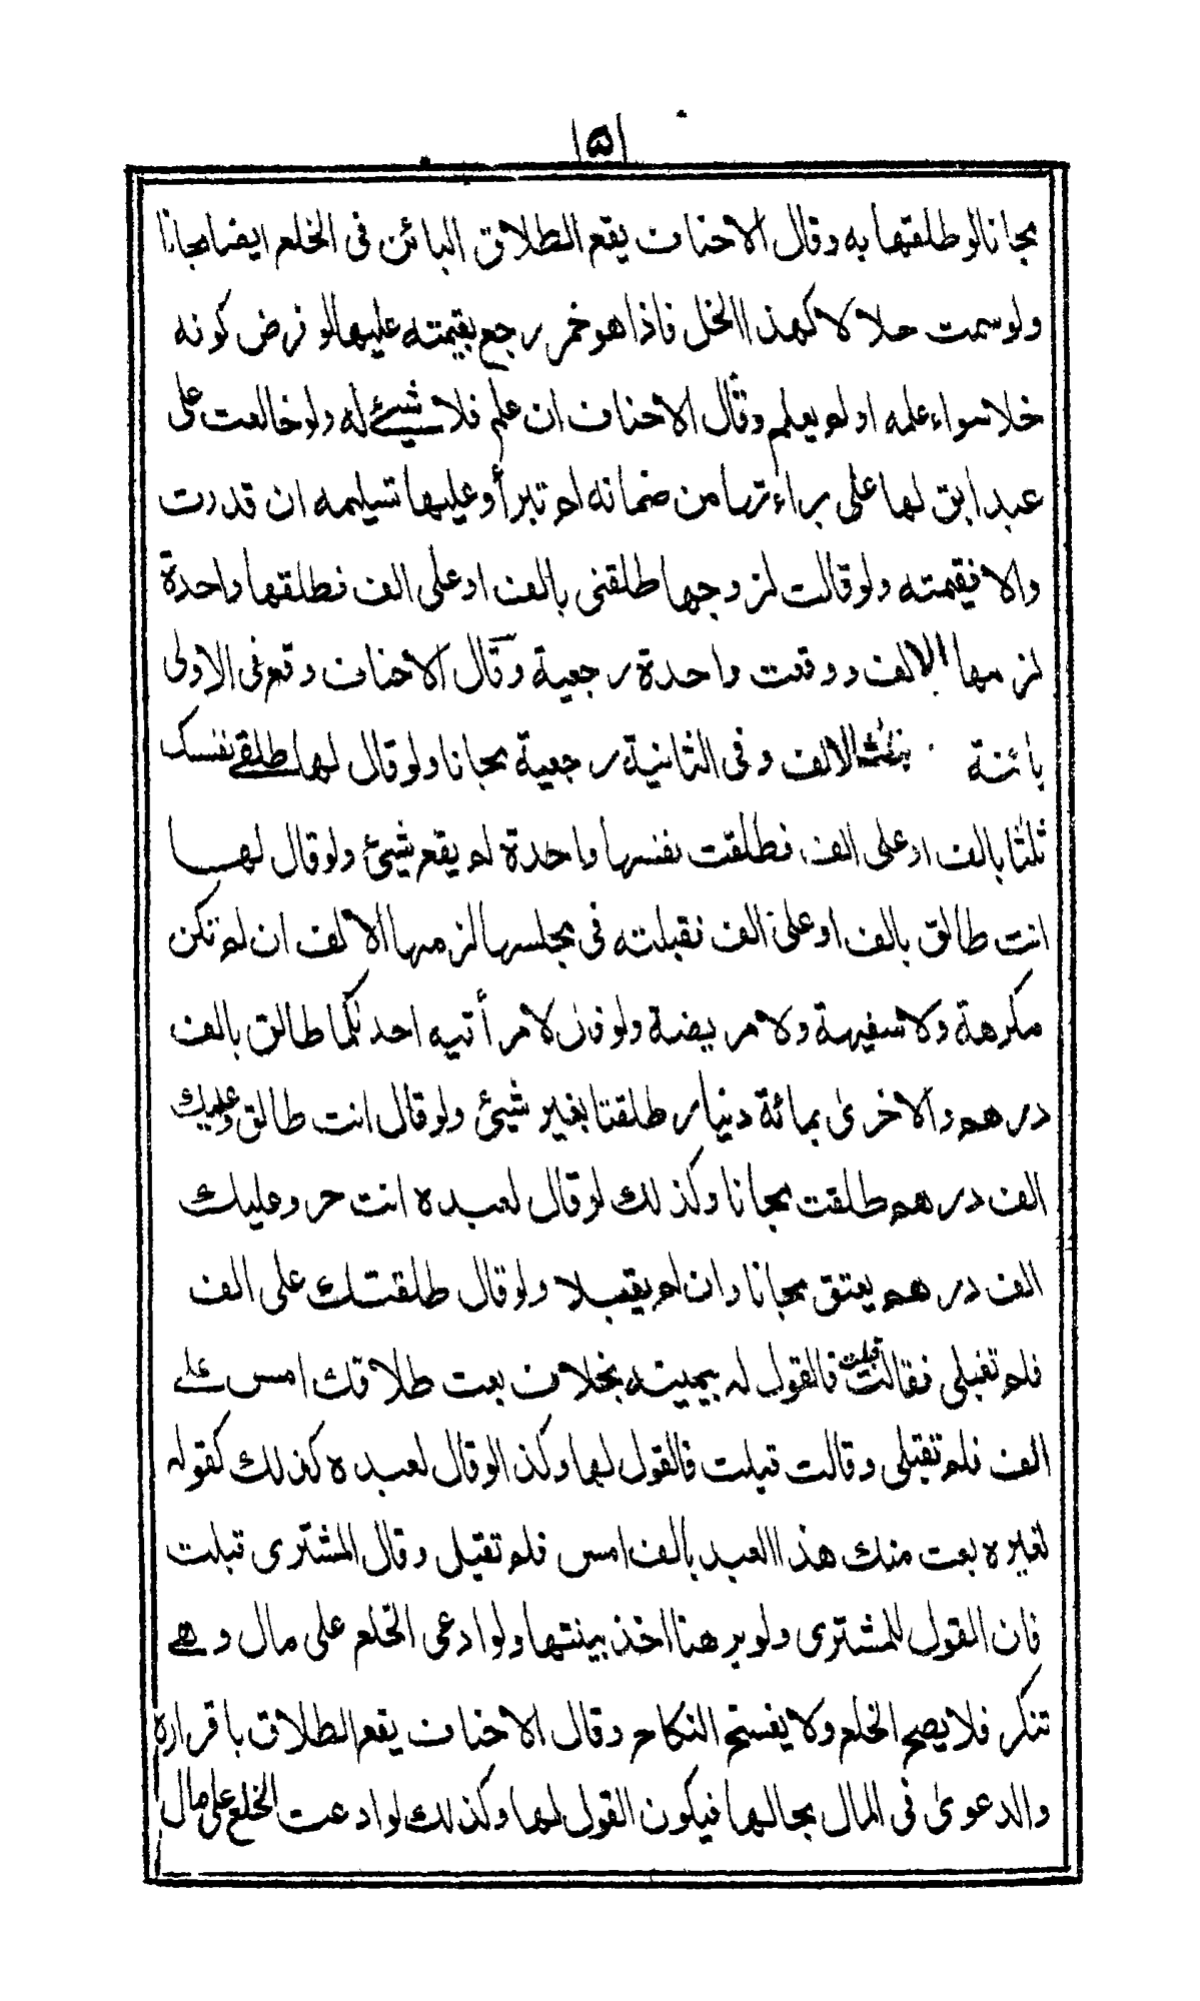 ١٥١
مجانا لو طلقتها به وقال الاحناف يقع الطلاق البائن فى الخلع ايضا مجانا
ولو سمت حلالا كهذا الخل فاذا هو خمر رجع بقيمته عليها لو فرض كونه
خلا سواء علمه او لم يعلم وقال الاحناف ان علم فلا شيئ له ولو خالعت على
عبد ابق لها على براءتها من ضمانه لم تبرأ وعليها تسليمه ان قدرت
والا فقيمته ولو قالت لزوجها طلقنى بالف او على الف فطلقها واحدة
لزمها الالف ووقعت واحدة رجعية وقال الاحناف وقع فى الاولى
بائنة بثلث الالف وفى الثانية رجعية مجانا ولو قال لها طلقے نفسك
ثلثا بالف او على الف فطلقت نفسها واحدة لم يقع شيئ ولو قال لها
انت طالق بالف او على الف فقبلته فى مجلسها لزمها الالف ان لم تكن
مكرهة ولا سفيهة ولا مريضة ولو قال لامرأتيه احدٰكما طالق بالف
درهم والاخرىٰ بمائة دينار طلقتا بغير شيئ ولو قال انت طالق وعليك
الف درهم طلقت مجانا وكذلك لو قال لعبده انت حر وعليك
الف درهم يعتق مجانا وان لم يقبلا ولو قال طلقتك على الف
فلم تقبلى فقالت قبلت فالقول له بيمينه بخلاف بعت طلاقك امس علے
الف فلم تقبلى وقالت قبلت فالقول لها وكذا لو قال لعبده كذلك كقوله
لغيره بعت منك هذا العبد بالف امس فلم تقبل وقال المشترى قبلت
فان القول للمشترى ولو برهنا اخذ ببينتها ولو ادعى الخلع على مال وهے
تنكر فلا يصح الخلع ولا يفسخ النكاح وقال الاحناف يقع الطلاق باقراره
والدعوىٰ فى المال بحالها فيكون القول لها وكذلك لو ادعت الخلع على مال